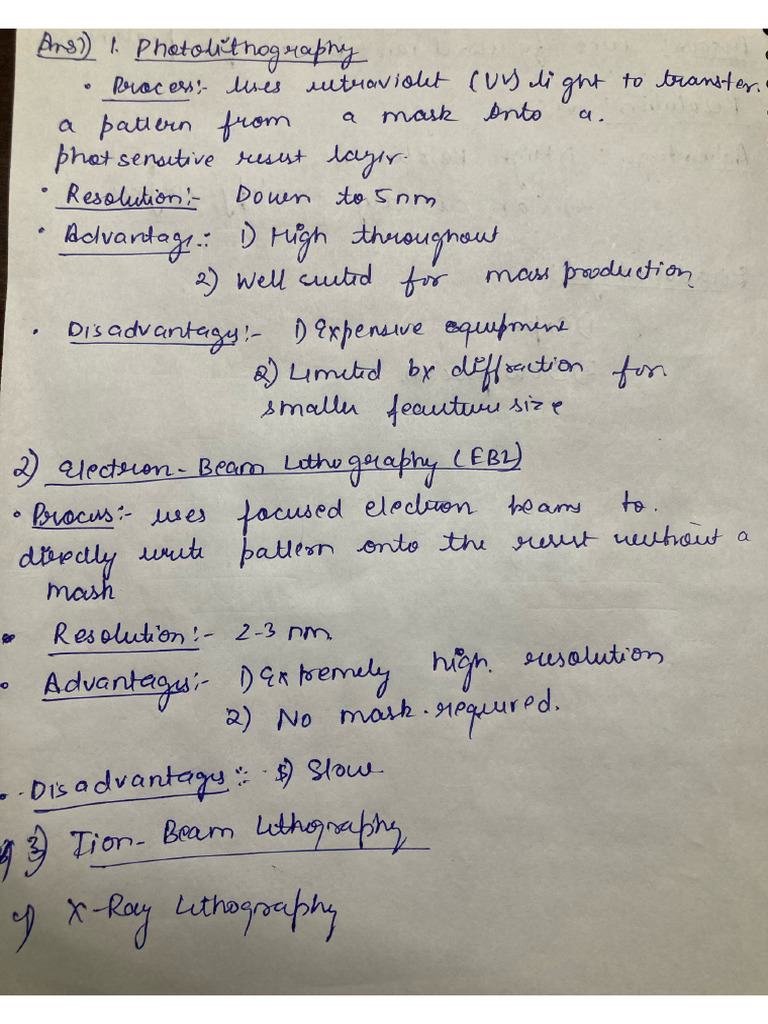 Ans1) 1. Photolithography
• Process:- Uses ultraviolet (UV) light to transfer.
a pattern from a mask onto a.
photsensitive resist layer.
• Resolution:- Down to 5nm
• Advantage.: 1) High throughout
2) Well suited for mass production
• Disadvantages:- 1) Expensive equipment
2) Limited by diffraction for
smaller feauture size
2) Electron-Beam Lithography (EBL)
• Process:- uses focused electron beams to.
directly write pattern onto the resist without a
mask
• Resolution:- 2-3 nm.
• Advantages:- 1) Extremely high. resolution
2) No mask.required.
• Disadvantages:- 1) Slow
3) Iion-Beam Lithography
4) X-Ray Lithography